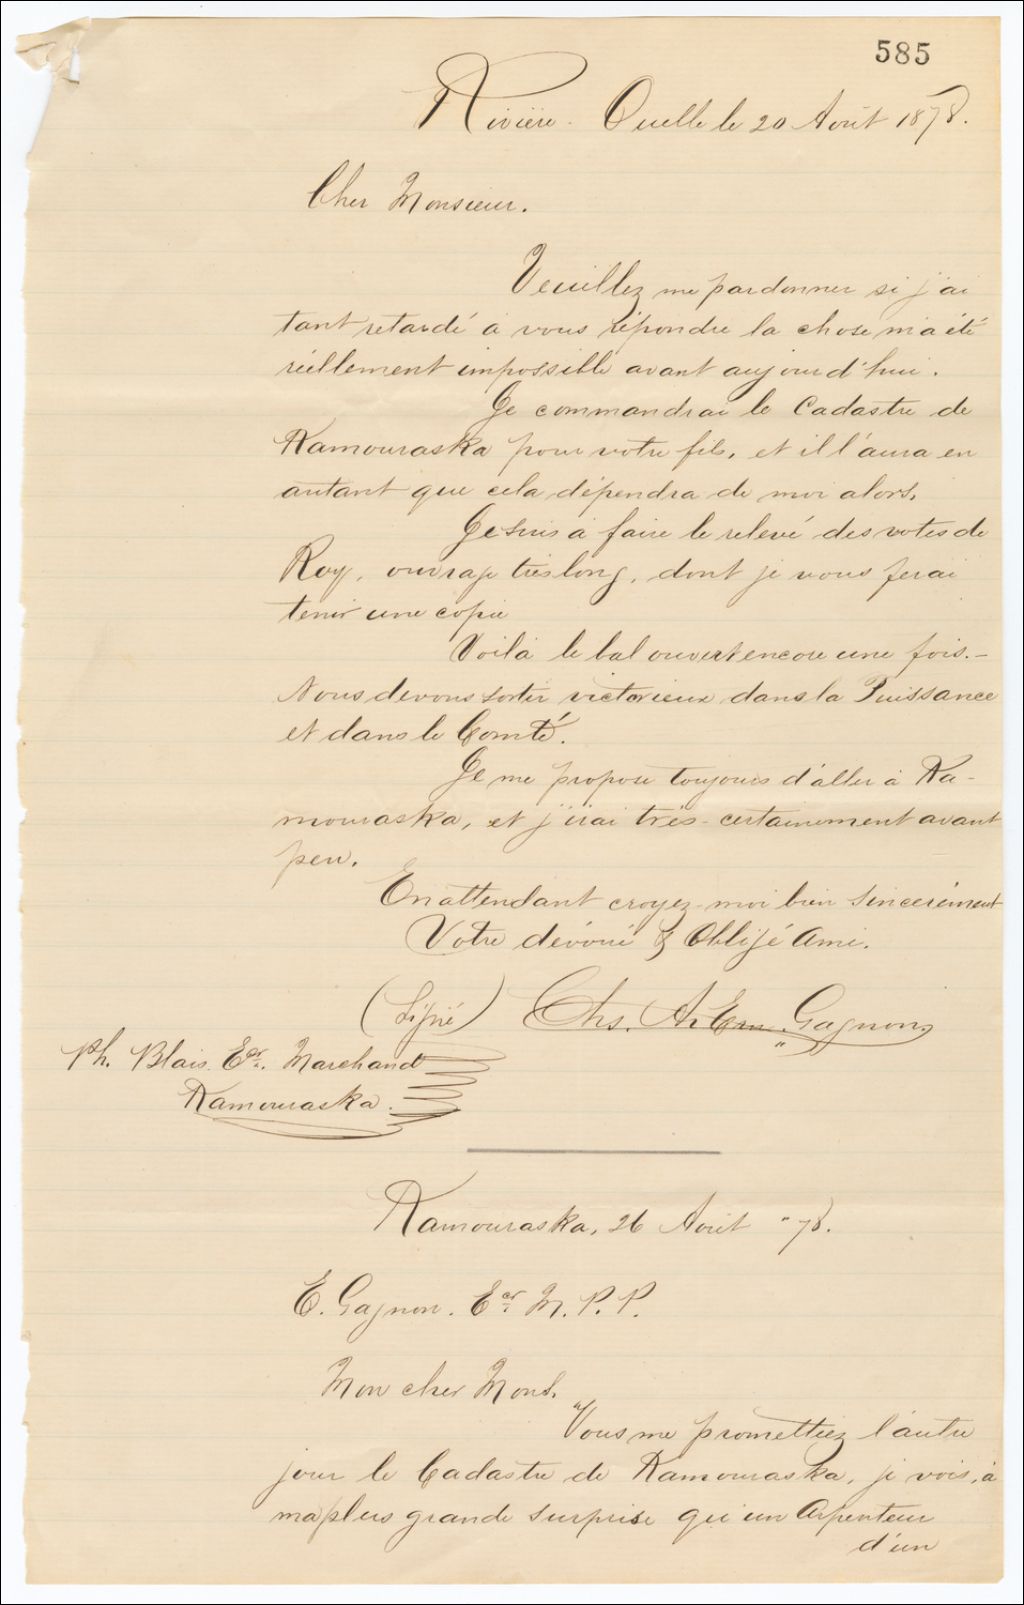 585
Rivière Ouelle le 20 Août 1878.
Cher Monsieur.
Veuillez me pardonner si j'ai
tant retardé à vous répondre la chose m'a été
réellement impossible avant aujourd'hui.
Je commandrai le Cadastre de
Kamouraska pour votre fils, et il l'aura en
autant que cela dépendra de moi alors.
Je suis à faire le relevé des votes de
Roy, ouvrage très long, dont je vous ferai
tenir une copie
Voilà le bal ouvert encore une fois.-
Nous devons sortir victorieux dans la Puissance
et dans le Comté.
Je me propose toujours d'aller à Ka-
mouraska, et j'irai très-certainement avant
peu.
En attendant croyez-moi bien sincerément
Votre dévoué & Obligé Ami.
(Signé) Chs. Ant Ern. Gagnon
Ph. Blais. Ecr. Marchand
Kamouraska.
Kamouraska, 26 Août "78.
E. Gagnon. Ecr. M. P. P.
Mon cher Mons.
"Vous me promettiez l'autre
jour le Cadastre de Kamouraska, je vois, à
ma plus grande surprise qu'un Arpenteur
d'un